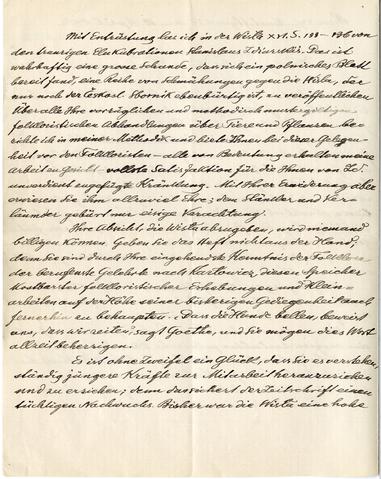 Mit Entrüstung las ich in der Wisła XVI. S.
den traurigen Elukubrationen Stanislaus Zdziarski's. Das ist
wahrhaftig eine grosse Schande, dass sich ein polnisches Blatt
bereit fand, eine Reihe von Schmähungen gegen die Wisła, der
nur noch der Českosl. Sborník ebenbürtig ist, zu veröffentlichen.
Über alle Ihre vorzüglichen und methodisch mustergiltigen
folkloristischen Abhandlungen über Tiere und Pflanzen be-
richte ich in meiner Methodik und biete Ihnen bei dieser Gelegen-
heit vor den Folkloristen – alle von Bedeutung erhalten meine
Arbeit zu Gesicht – vollste Satisfaktion für die Ihnen von Zd.
unverdient zugefügte Kränkung. Mit Ihrer Erwiderung aber
erweisen Sie ihm allzuviel Ehre; dem Stänkler und Ver-
läumder gebürt nur eisige Verachtung.
Ihre Absicht, die Wisła abzugeben, wird niemand
billigen können. Geben Sie das Heft nicht aus der Hand,
denn Sie sind durch Ihre eingehendste Kenntnis der Folklore
der berufenste Gelehrte nach Karłowicz, diesen Speicher
kostbarster folkloristischer Erhebungen und Klein-
arbeiten auf der Höhe seiner bisherigen Gediegenheit auch
fernerhin zu behaupten. „Dass die Hunde bellen, beweist
uns, dass wir reiten", sagt Goethe, und Sie mögen dies Wort
allzeit beherzigen.
Es ist ohne Zweifel ein Glück, dass Sie es verstehen,
ständig jüngere Kräfte zur Mitarbeit heranzuziehen
und zu erziehen; denn das sichert der Zeitschrift einen
tüchtigen Nachwuchs. Bisher war die Wisła eine hohe